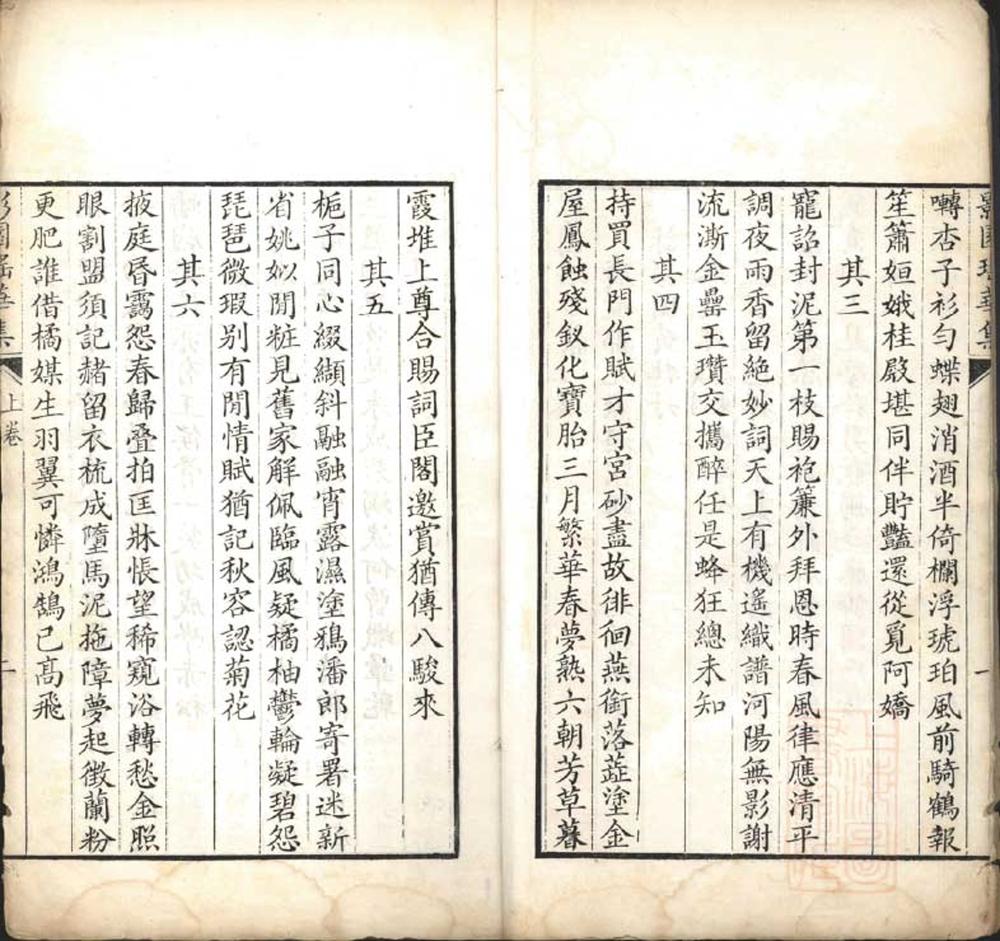 影園瑤華集
一
囀杏子衫勻蝶翅消酒半倚欄浮琥珀風前騎鶴報
笙簫姮娥桂殿堪同伴貯豔還從覓阿嬌
其三
寵詔封泥第一枝賜袍簾外拜恩時春風律應清平
調夜雨香留絶妙詞天上有機遙織譜河陽無影謝
流澌金罍玉瓚交攜醉任是蜂狂總未知
其四
持買長門作賦才守宮砂盡故徘徊燕銜落蕋塗金
屋鳳蝕殘釵化寶胎三月繁華春夢熟六朝芳草暮
霞堆上尊合賜詞臣閣邀賞猶傳八駿來
其五
梔子同心綴纈斜融融宵露濕塗鴉潘郎寄署迷新
省姚姒閒粧見舊家解佩臨風疑橘柚鬱輪凝碧怨
琵琶微瑕别有閒情賦猶記秋容認菊花
其六
掖庭昏靄怨春歸疊拍匡牀悵望稀窺浴轉愁金照
眼割盟須記赭留衣梳成墮馬泥拖障夢起徵蘭粉
更肥誰借橘媒生羽翼可憐鴻鵠已髙飛
影園瑤華集
上卷
二